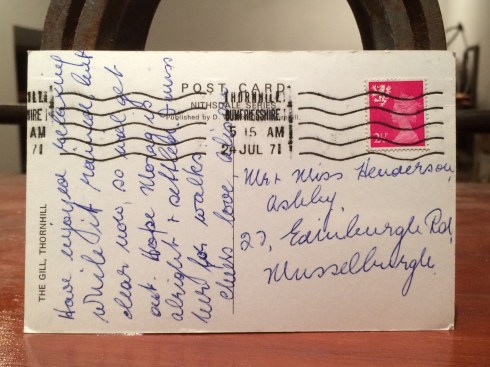 POST CARD
NITHSDALE SERIES
Published by D.
THORNHILL
DUMFRIESSHIRE
5 15 AM
24 JUL 71
HIRE
AM
71
2½
THE GILL, THORNHILL
Have enjoyed
while it rained but
clear now, so will get
out. Hope Morag is
alright & settled. I miss
her for walks.
Cheers love
Mr & Miss Henderson,
Ashley,
27, Edinburgh Rd,
Musselburgh.